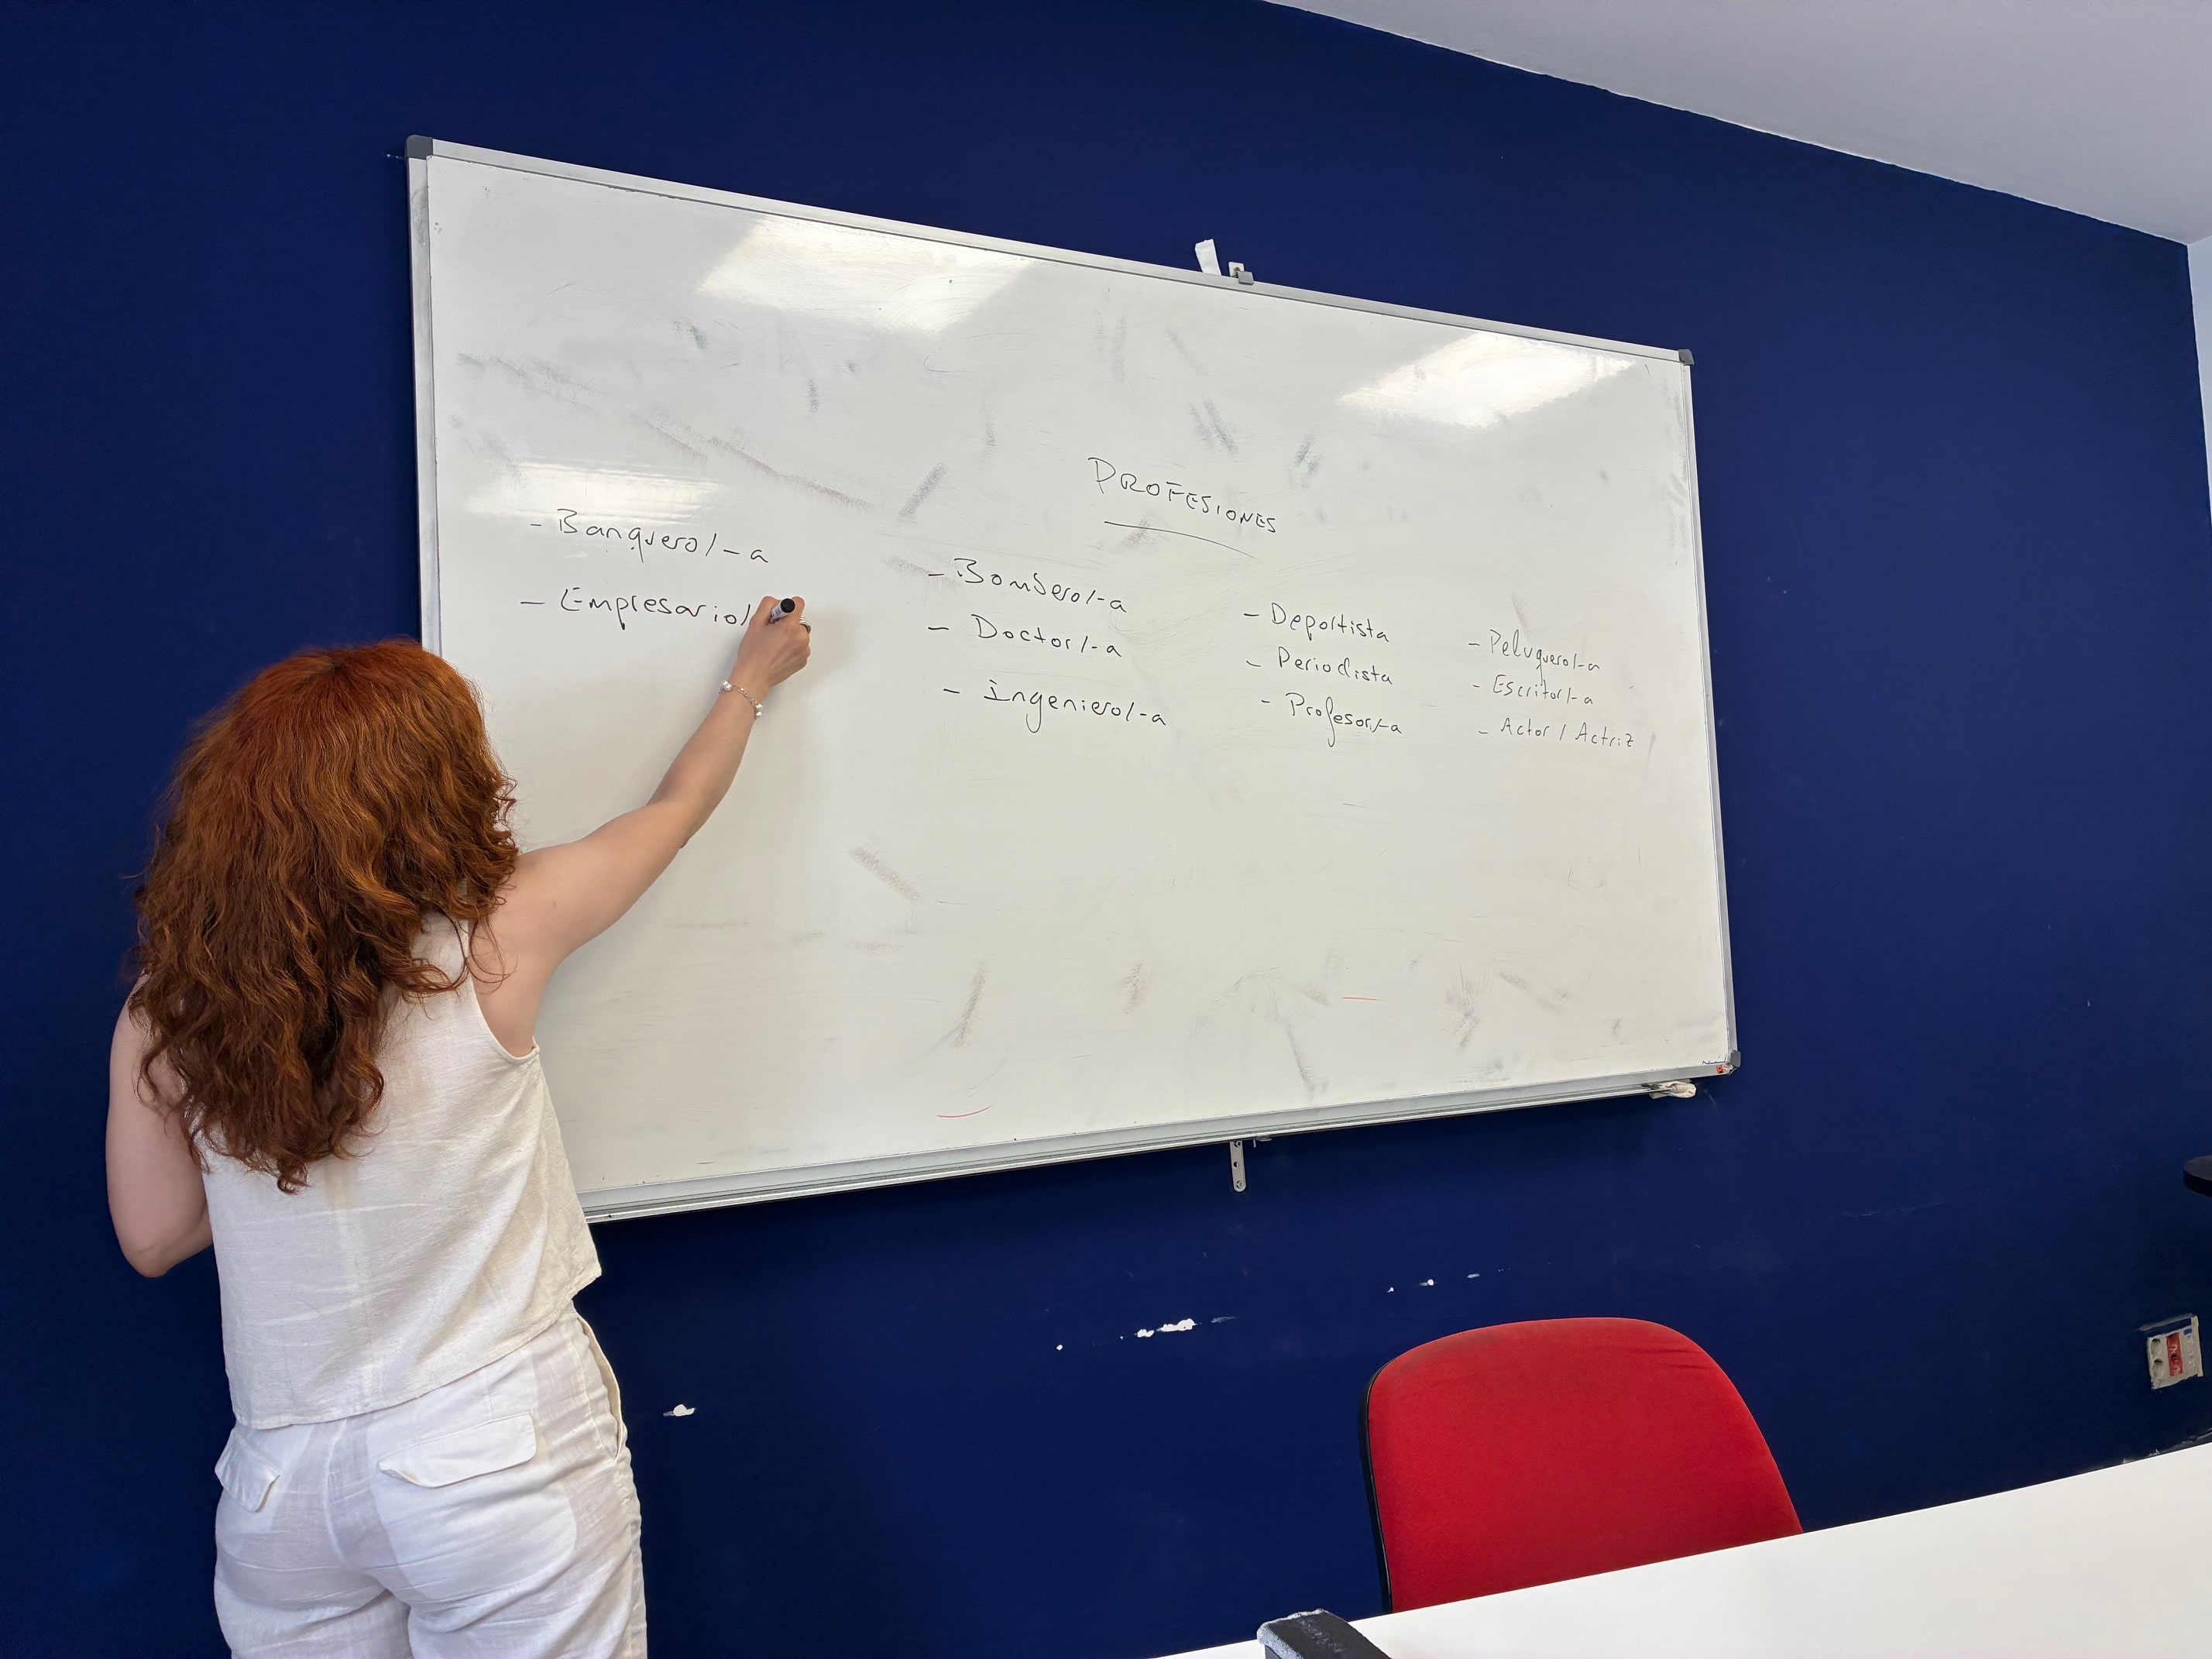 PROFESIONES
- Banquero/-a
- Empresario/
- Bombero/-a
- Doctor/-a
- Ingeniero/-a
- Deportista
- Periodista
- Profesor/-a
- Peluquero/-a
- Escritor/-a
- Actor / Actriz